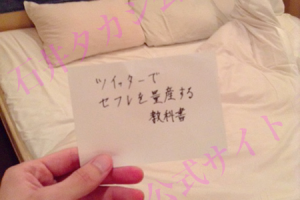 石井タカシ
ツイッターで
セフレを量産する
教科書
公式サイト